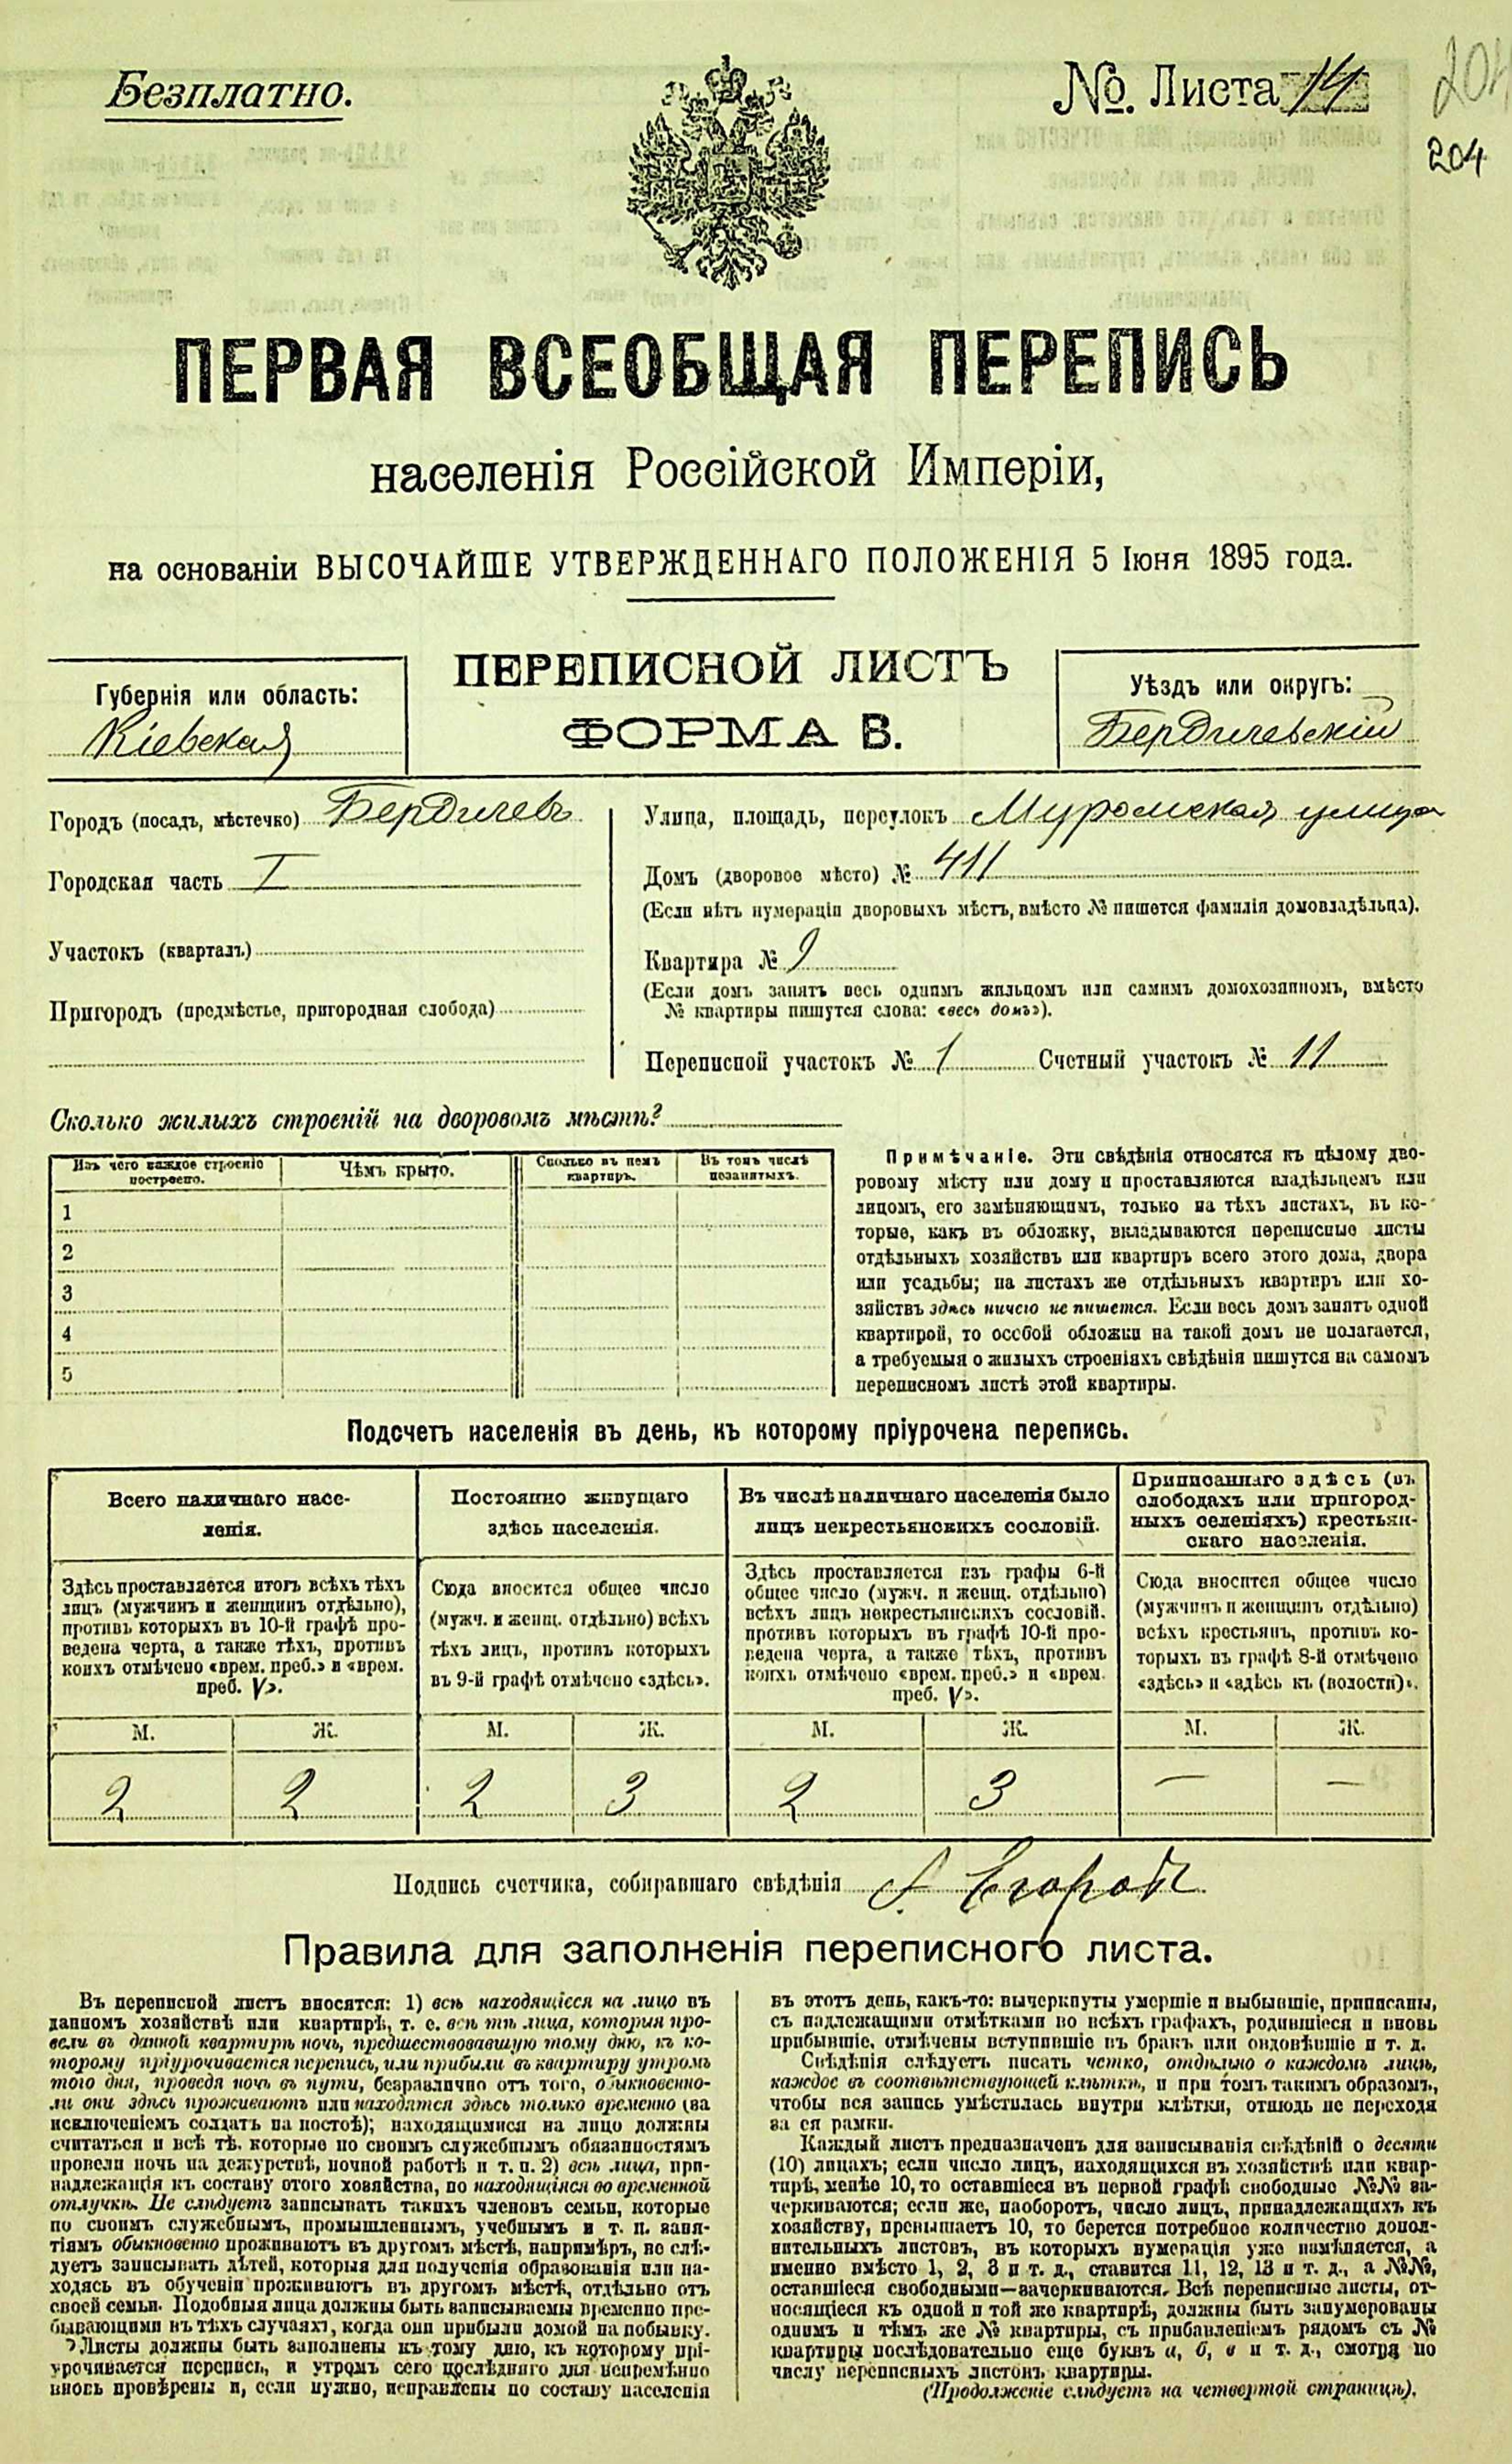 Безплатно.
№. Листа 14
204
204
ПЕРВАЯ ВСЕОБЩАЯ ПЕРЕПИСЬ
населенія Россійской Имперіи,
на основаніи ВЫСОЧАЙШЕ УТВЕРЖДЕННАГО ПОЛОЖЕНІЯ 5 Іюня 1895 года.
ПЕРЕПИСНОЙ ЛИСТЪ
ФОРМА В.
Губернія или область:
Кіевская
Уѣздъ или округъ:
Бердичевскій
Городъ (посадъ, мѣстечко) Бердичевъ
Городская часть I
Участокъ (кварталъ)
Пригородъ (предмѣстье, пригородная слобода)
Улица, площадь, переулокъ Муромская улица
Домъ (дворовое мѣсто) № 411
(Если нѣтъ нумераціи дворовыхъ мѣстъ, вмѣсто № пишется фамилія домовладѣльца).
Квартира № 9
(Если домъ занятъ весь однимъ жильцомъ или самимъ домохозяиномъ, вмѣсто
№ квартиры пишутся слова: «весь домъ»).
Переписной участокъ № 1 Счетный участокъ № 11
Сколько жилыхъ строеній на дворовомъ мѣстѣ?
Изъ чего каждое строеніе
построено.
Чѣмъ крыто.
Сколько въ немъ
квартиръ.
Въ томъ числѣ
незанятыхъ.
1
2
3
4
5
Примѣчаніе. Эти свѣдѣнія относятся къ цѣлому дво-
ровому мѣсту или дому и проставляются владѣльцемъ или
лицомъ, его замѣняющимъ, только на тѣхъ листахъ, въ ко-
торые, какъ въ обложку, вкладываются переписные листы
отдѣльныхъ хозяйствъ или квартиръ всего этого дома, двора
или усадьбы; на листахъ же отдѣльныхъ квартиръ или хо-
зяйствъ здѣсь ничего не пишется. Если весь домъ занятъ одной
квартирой, то особой обложки на такой домъ не полагается,
а требуемыя о жилыхъ строеніяхъ свѣдѣнія пишутся на самомъ
переписномъ листѣ этой квартиры.
Подсчетъ населенія въ день, къ которому пріурочена перепись.
Всего наличнаго насе-
ленія.
Постоянно живущаго
здѣсь населенія.
Въ числѣ наличнаго населенія было
лицъ некрестьянскихъ сословій.
Приписаннаго здѣсь (въ
слободахъ или пригород-
ныхъ селеніяхъ) крестьян-
скаго населенія.
Здѣсь проставляется итогъ всѣхъ тѣхъ
лицъ (мужчинъ и женщинъ отдѣльно),
противъ которыхъ въ 10-й графѣ про-
ведена черта, а также тѣхъ, противъ
коихъ отмѣчено «врем. преб.» и «врем.
преб. V».
Сюда вносится общее число
(мужч. и женщ. отдѣльно) всѣхъ
тѣхъ лицъ, противъ которыхъ
въ 9-й графѣ отмѣчено «здѣсь».
Здѣсь проставляется изъ графы 6-й
общее число (мужч. и женщ. отдѣльно)
всѣхъ лицъ некрестьянскихъ сословій.
противъ которыхъ въ графѣ 10-й про-
ведена черта, а также тѣхъ, противъ
коихъ отмѣчено «врем. преб.» и «врем.
преб. V».
Сюда вносится общее число
(мужчинъ и женщинъ отдѣльно)
всѣхъ крестьянъ, противъ ко-
торыхъ въ графѣ 8-й отмѣчено
«здѣсь» и «здѣсь къ (волости)».
М. Ж. М. Ж. М. Ж. М. Ж.
2 2 2 3 2 3 — —
Подпись счетчика, собиравшаго свѣдѣнія
Правила для заполненія переписного листа.
Въ переписной листъ вносятся: 1) всѣ находящіеся на лицо въ
данномъ хозяйствѣ или квартирѣ, т. е. всѣ тѣ лица, которыя про-
вели въ данной квартирѣ ночь, предшествовавшую тому дню, къ ко-
торому пріурочивается перепись, или прибыли въ квартиру утромъ
того дня, проведя ночь въ пути, безразлично отъ того, обыкновенно-
ли они здѣсь проживаютъ или находятся здѣсь только временно (за
исключеніемъ солдатъ на постоѣ); находящимися на лицо должны
считаться и всѣ тѣ, которые по своимъ служебнымъ обязанностямъ
провели ночь на дежурствѣ, ночной работѣ и т. п. 2) всѣ лица, при-
надлежащія къ составу этого хозяйства, но находящіяся во временной
отлучкѣ. Не слѣдуетъ записывать такихъ членовъ семьи, которые
по своимъ служебнымъ, промышленнымъ, учебнымъ и т. п. заня-
тіямъ обыкновенно проживаютъ въ другомъ мѣстѣ, напримѣръ, не слѣ-
дуетъ записывать дѣтей, которыя для полученія образованія или на-
ходясь въ обученіи проживаютъ въ другомъ мѣстѣ, отдѣльно отъ
своей семьи. Подобныя лица должны быть записываемы временно пре-
бывающими въ тѣхъ случаяхъ, когда они прибыли домой на побывку.
Листы должны быть заполнены къ тому дню, къ которому прі-
урочивается перепись, и утромъ сего послѣдняго дня непремѣнно
вновь провѣрены и, если нужно, исправлены по составу населенія
въ этотъ день, какъ-то: вычеркнуты умершіе и выбывшіе, приписаны,
съ надлежащими отмѣтками во всѣхъ графахъ, родившіеся и вновь
прибывшіе, отмѣчены вступившіе въ бракъ или овдовѣвшіе и т. д.
Свѣдѣнія слѣдуетъ писать четко, отдѣльно о каждомъ лицѣ,
каждое въ соотвѣтствующей клѣткѣ, и при томъ такимъ образомъ,
чтобы вся запись умѣстилась внутри клѣтки, отнюдь не переходя
за ея рамки.
Каждый листъ предназначенъ для записыванія свѣдѣній о десяти
(10) лицахъ; если число лицъ, находящихся въ хозяйствѣ или квар-
тирѣ, менѣе 10, то оставшіеся въ первой графѣ свободные №№ за-
черкиваются; если же, наоборотъ, число лицъ, принадлежащихъ къ
хозяйству, превышаетъ 10, то берется потребное количество допол-
нительныхъ листовъ, въ которыхъ нумерація уже измѣняется, а
именно вмѣсто 1, 2, 3 и т. д., ставится 11, 12, 13 и т. д., а №№,
оставшіеся свободными—зачеркиваются. Всѣ переписные листы, от-
носящіеся къ одной и той же квартирѣ, должны быть занумерованы
однимъ и тѣмъ же № квартиры, съ прибавленіемъ рядомъ съ №
квартиры послѣдовательно еще буквъ а, б, в и т. д., смотря по
числу переписныхъ листовъ квартиры.
(Продолженіе слѣдуетъ на четвертой страницѣ).